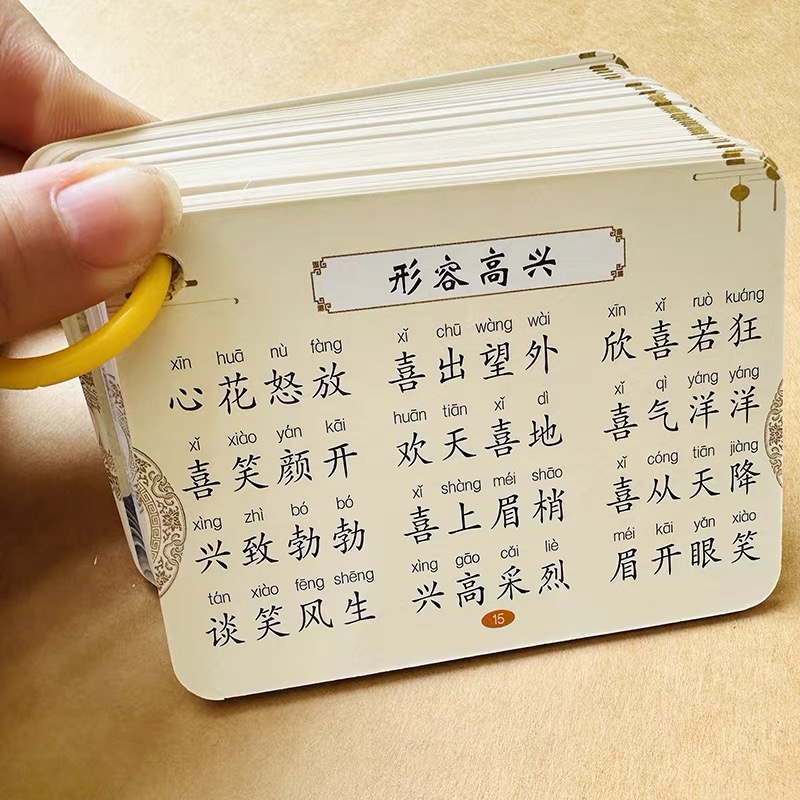 形容高兴
xīn huā nù fàng xǐ chū wàng wài xīn xǐ ruò kuáng
心花怒放 喜出望外 欣喜若狂
xǐ xiào yán kāi huān tiān xǐ dì xǐ qì yáng yáng
喜笑颜开 欢天喜地 喜气洋洋
xìng zhì bó bó xǐ shàng méi shāo xǐ cóng tiān jiàng
兴致勃勃 喜上眉梢 喜从天降
tán xiào fēng shēng xìng gāo cǎi liè méi kāi yǎn xiào
谈笑风生 兴高采烈 眉开眼笑
15